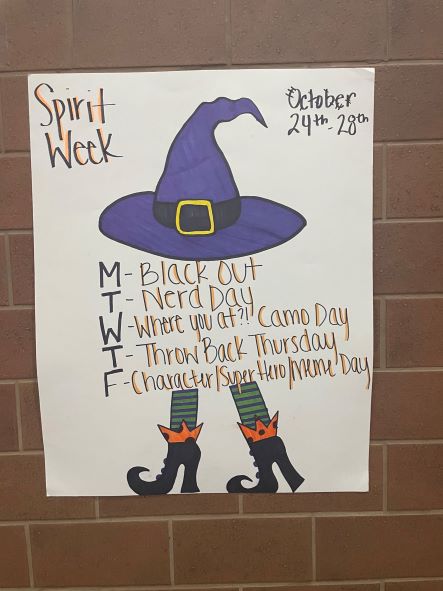 Spirit
Week
October
24th - 28th
M - Black Out
T - Nerd Day
W - Where you at?! Camo Day
T - Throw Back Thursday
F - Character/Super Hero/Meme Day